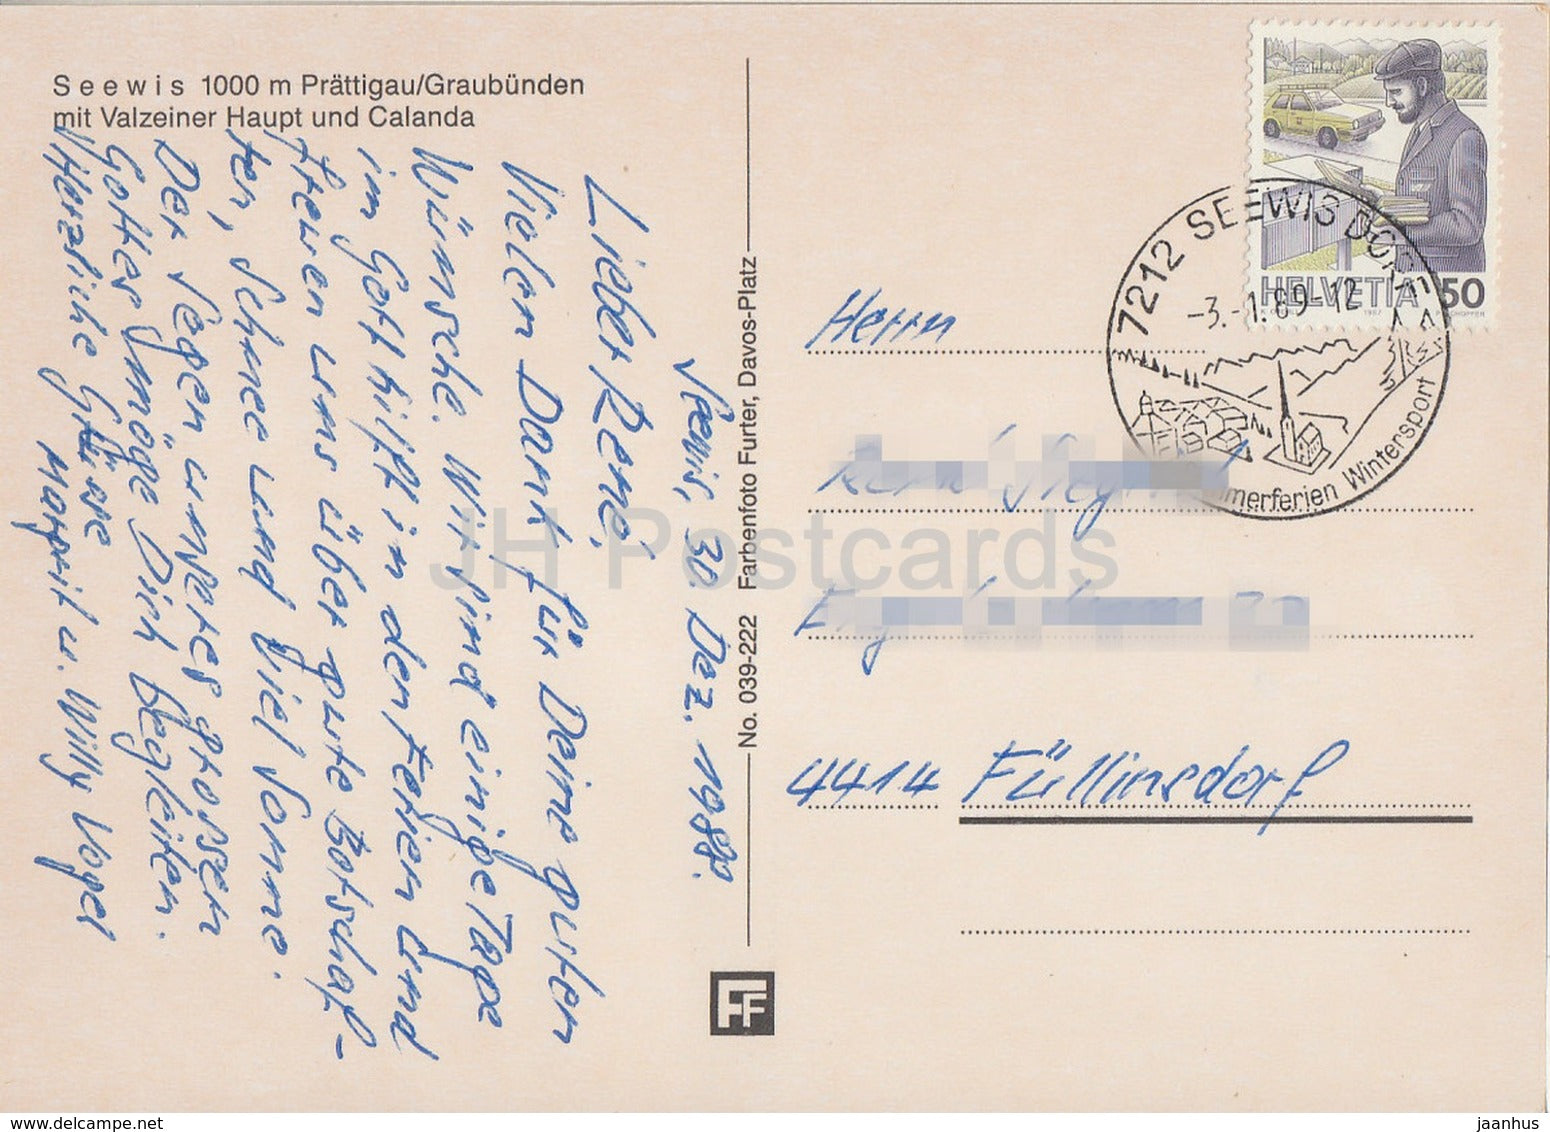 Seewis 1000 m Prättigau/Graubünden
mit Valzeiner Haupt und Calanda
Seewis, 30. Dez. 1988.
Lieber René,
Vielen Dank für Deine guten
Wünsche. Wir sind einige Tage
im Gotthilft in den Ferien und
freuen uns über gute Botschaf-
ter, Schnee und viel Sonne.
Der Segen unseres grossen
Gottes möge Dich begleiten.
Herzliche Grüsse
Margrit u. Willy Vogel
No. 039-222 Farbenfoto Furter, Davos-Platz
FF
HELVETIA 50
1987
7212 SEEWIS DORF
-3.-1.89-12
merferien Wintersport
Herrn
René
4414 Füllinsdorf
JH Postcards
jaanhus
www.delcampe.net